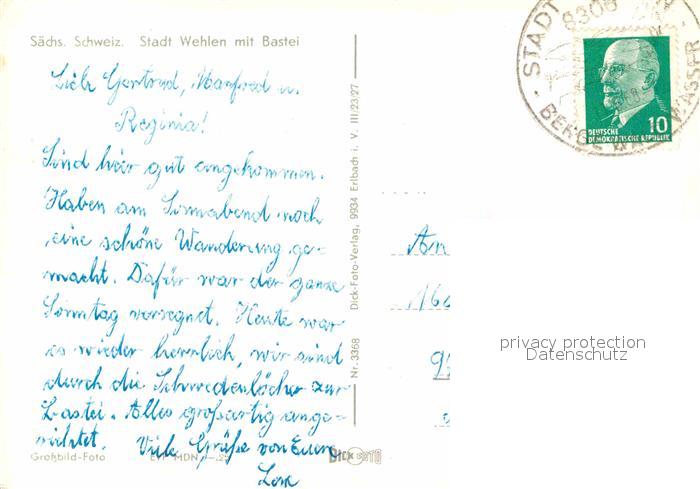 Sächs. Schweiz. Stadt Wehlen mit Bastei
Liebe Gertrud, Manfred u.
Reginia!
Sind hier gut angekommen.
Haben am Sonnabend noch
eine schöne Wanderung ge-
macht. Dafür war der ganze
Sonntag verregnet. Heute war
es wieder herrlich, wir sind
durch die Schwedenlöcher zur
Bastei. Alles großartig einge-
richtet. Viele Grüße von Euern
Großbild-Foto MDN
DICK FOTO
Nr. 3368 Dick-Foto-Verlag, 9934 Erlbach i. V. III/23/27
STADT
8306
BERGE WASSER
DEUTSCHE
DEMOKRATISCHE REPUBLIK
10
An
privacy protection
Datenschutz